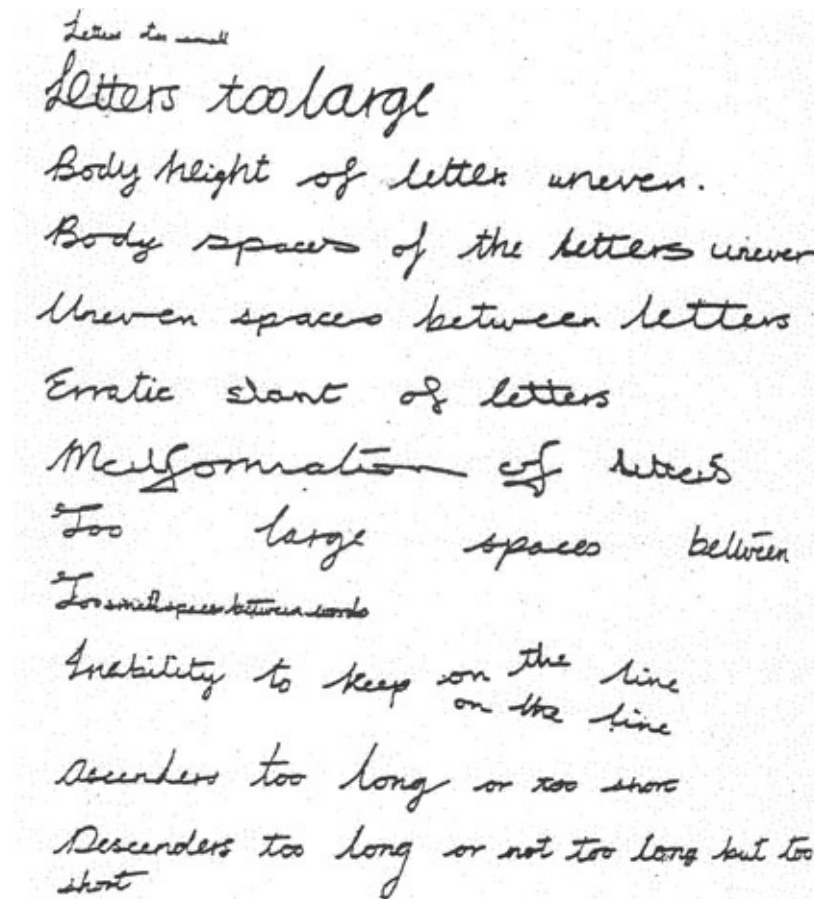 Letters too small
Letters too large
Body height of letter uneven.
Body spaces of the letters uneven
Uneven spaces between letters
Erratic slant of letters
Malformation of letters
Too large spaces between
Too small spaces between words
Inability to keep on the line
on the line
Ascenders too long or too short
Descenders too long or not too long but too
short